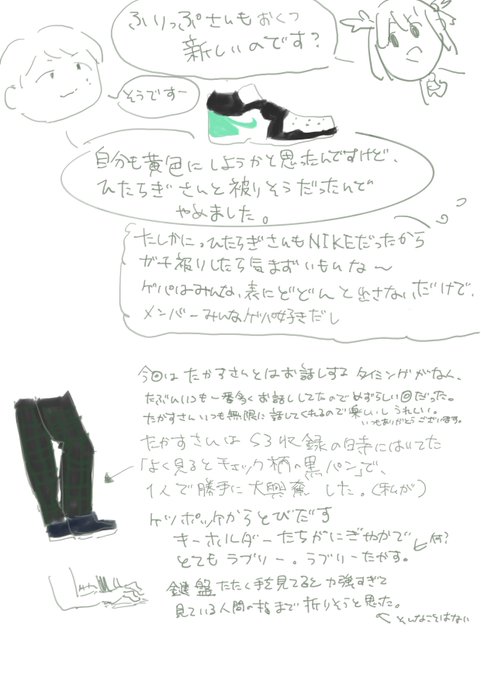 ふりっぷさんもおくつ
新しいのです?
そうですー
自分も黄色にしようかと思ったんですけど、
ひたちぎさんと被りそうだったんで
やめました。
たしかに。ひたちぎさんもNIKEだったから
ガチ被りしたら気まずいもんな〜
ゲバはみんな、表にどどんと出さないだけで、
メンバーみんなゲバ好きだし
今回はたかすさんとはお話しするタイミングがなく、
たぶんいつも一番多くお話ししてたのでめずらしい回だった。
たかすさんいつも無限に話してくれるので楽しいしうれしい。
いつもありがとうございます。
たかすさんはS3収録の時にはいてた
「よく見るとチェック柄の黒パン」で、
1人で勝手に大興奮した。(私が)
ケツポッケからとびだす
キーホルダーたちがにぎやかで
とてもラブリー。ラブリーたかす。
何?
鍵盤たたく手を見てると力強すぎて
見ている人間の指まで折りそうと思った。
そんなことはない